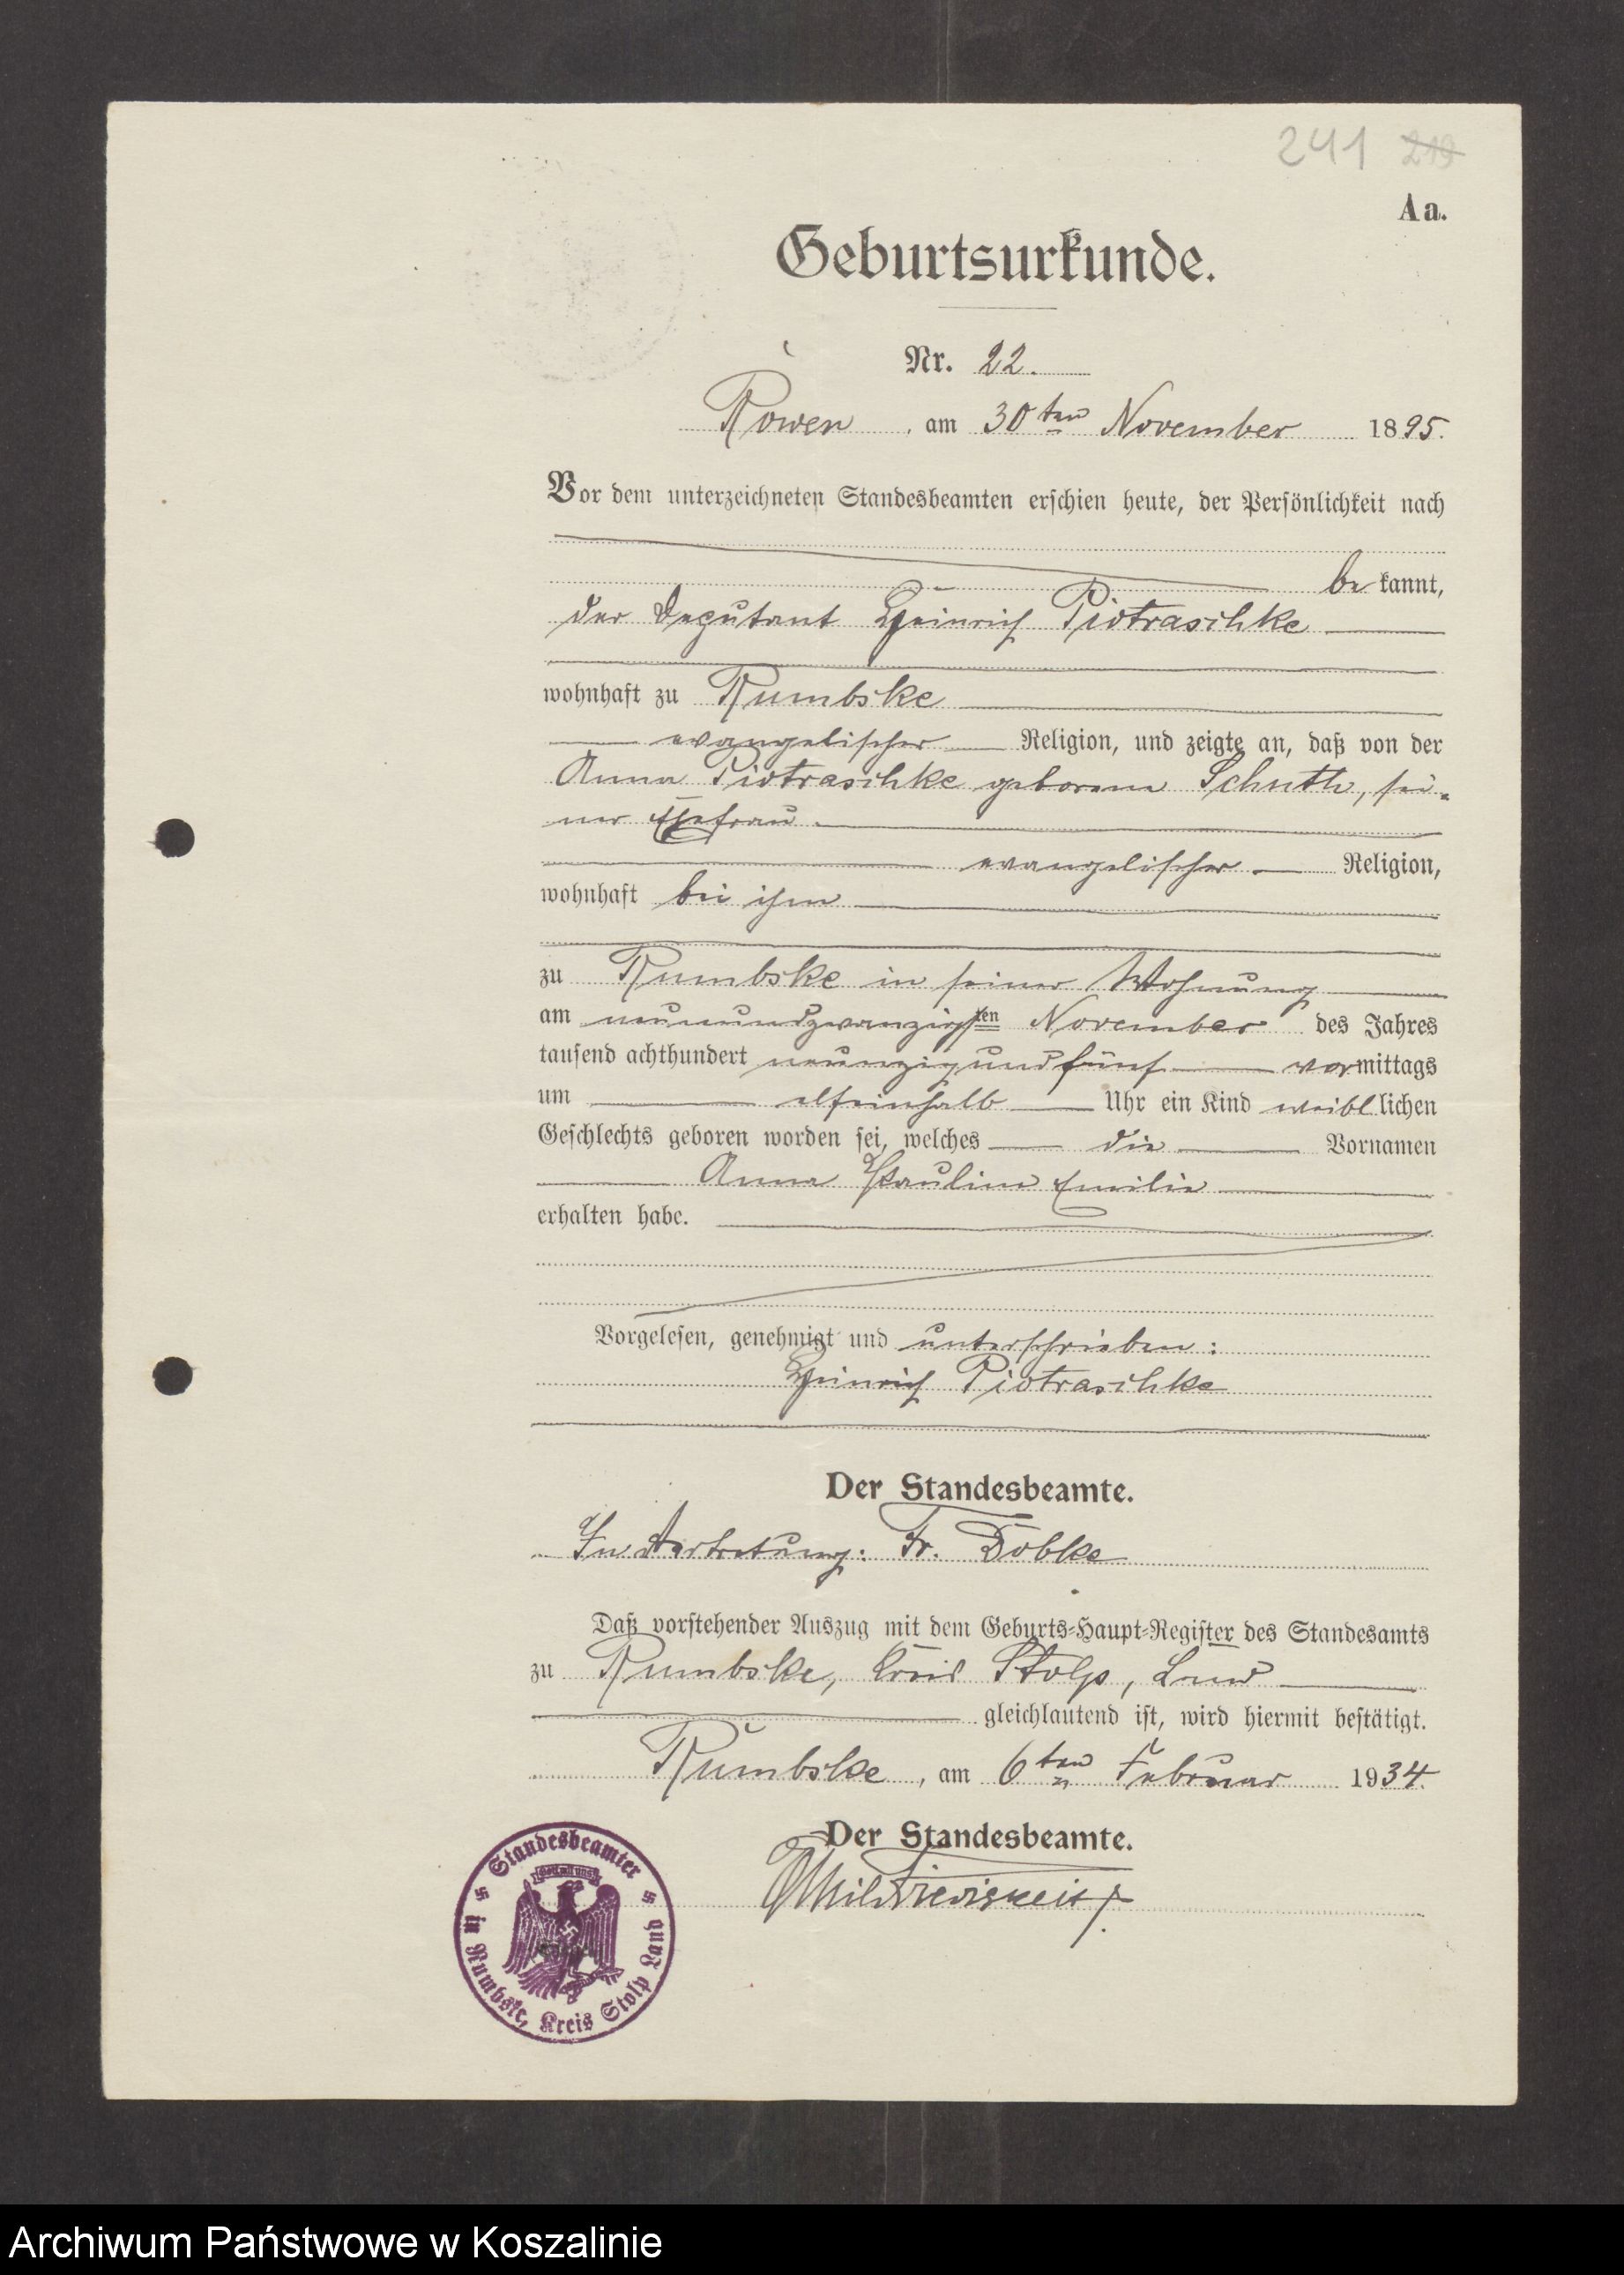 241 219
Aa.
Geburtsurkunde.
Nr. 22.
Rowen, am 30ten November 1895.
Vor dem unterzeichneten Standesbeamten erschien heute, der Persönlichkeit nach
bekannt,
der Deputant Heinrich Piotraschke
wohnhaft zu Rumbske
evangelischer Religion, und zeigte an, daß von der
Anna Piotraschke geborene Schuth, sei-
ner Ehefrau
evangelischer Religion,
wohnhaft bei ihm
zu Rumbske in seiner Wohnung
am neunundzwanzigsten November des Jahres
tausend achthundert neunzig und fünf vormittags
um elfeinhalb Uhr ein Kind weiblichen
Geschlechts geboren worden sei, welches die Vornamen
Anna Pauline Emilie
erhalten habe.
Vorgelesen, genehmigt und unterschrieben:
Heinrich Piotraschke
Der Standesbeamte.
In Vertretung: Fr. Dobke
Daß vorstehender Auszug mit dem Geburts-Haupt-Register des Standesamts
zu Rumbske, Kreis Stolp, Land
gleichlautend ist, wird hiermit bestätigt.
Rumbske, am 6ten Februar 1934.
Der Standesbeamte.
Standesbeamter
in Rumbske, Kreis Stolp Land
Gott mit uns
Archiwum Państwowe w Koszalinie